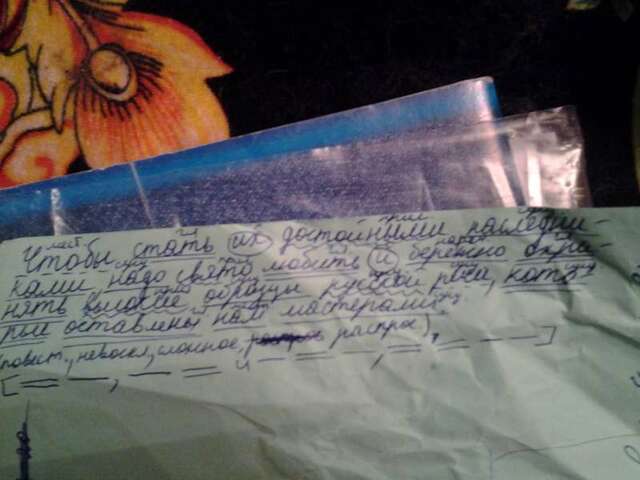 част. прил
Чтобы стать их достойными наследни-
ками, надо свято любить и бережно охра-
нять высокие образцы русской речи, кото-
рые оставлены нам мастерами.
(повест., невоскл., сложное, распрос),